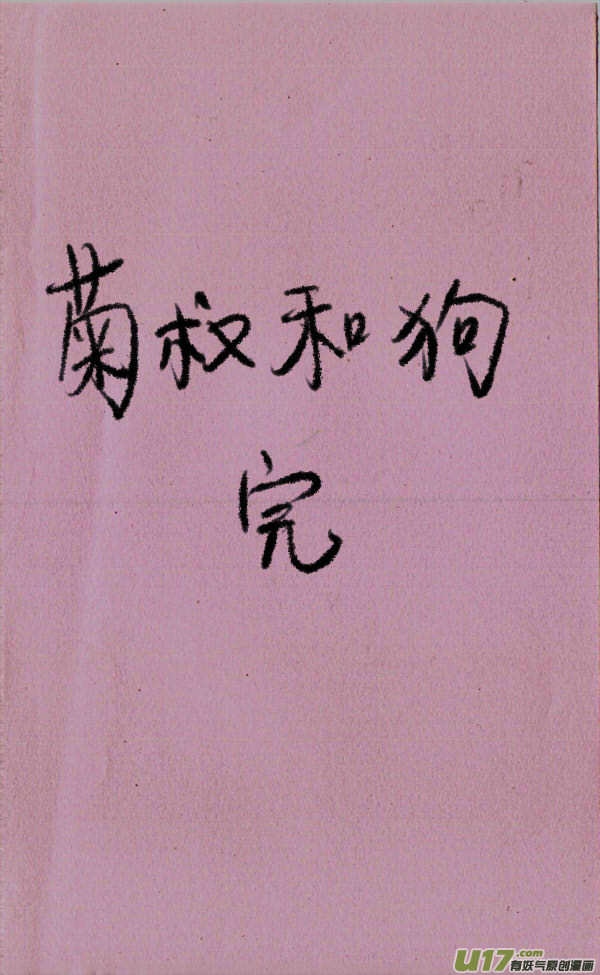 菊叔和狗
完
U17.com
有妖气原创漫画